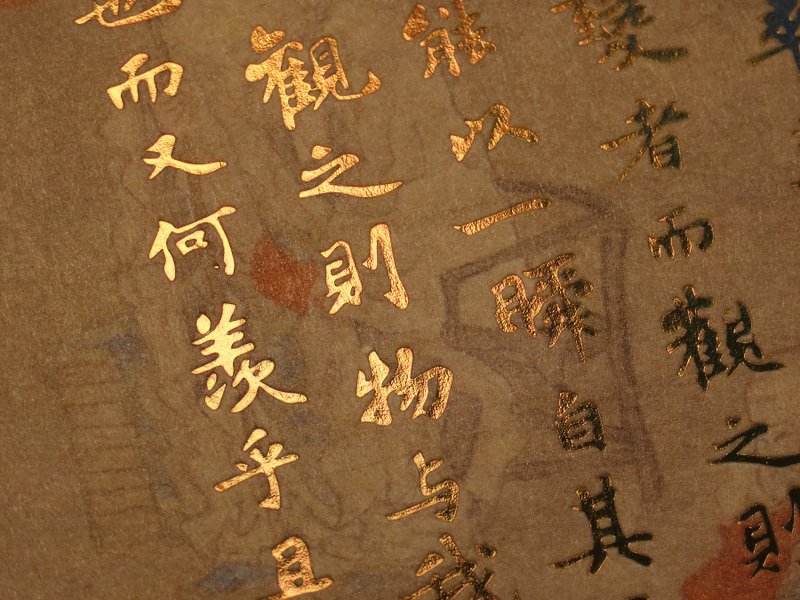 變者而觀之則
能以一瞬自其
觀之則物与我
也而又何羨乎且